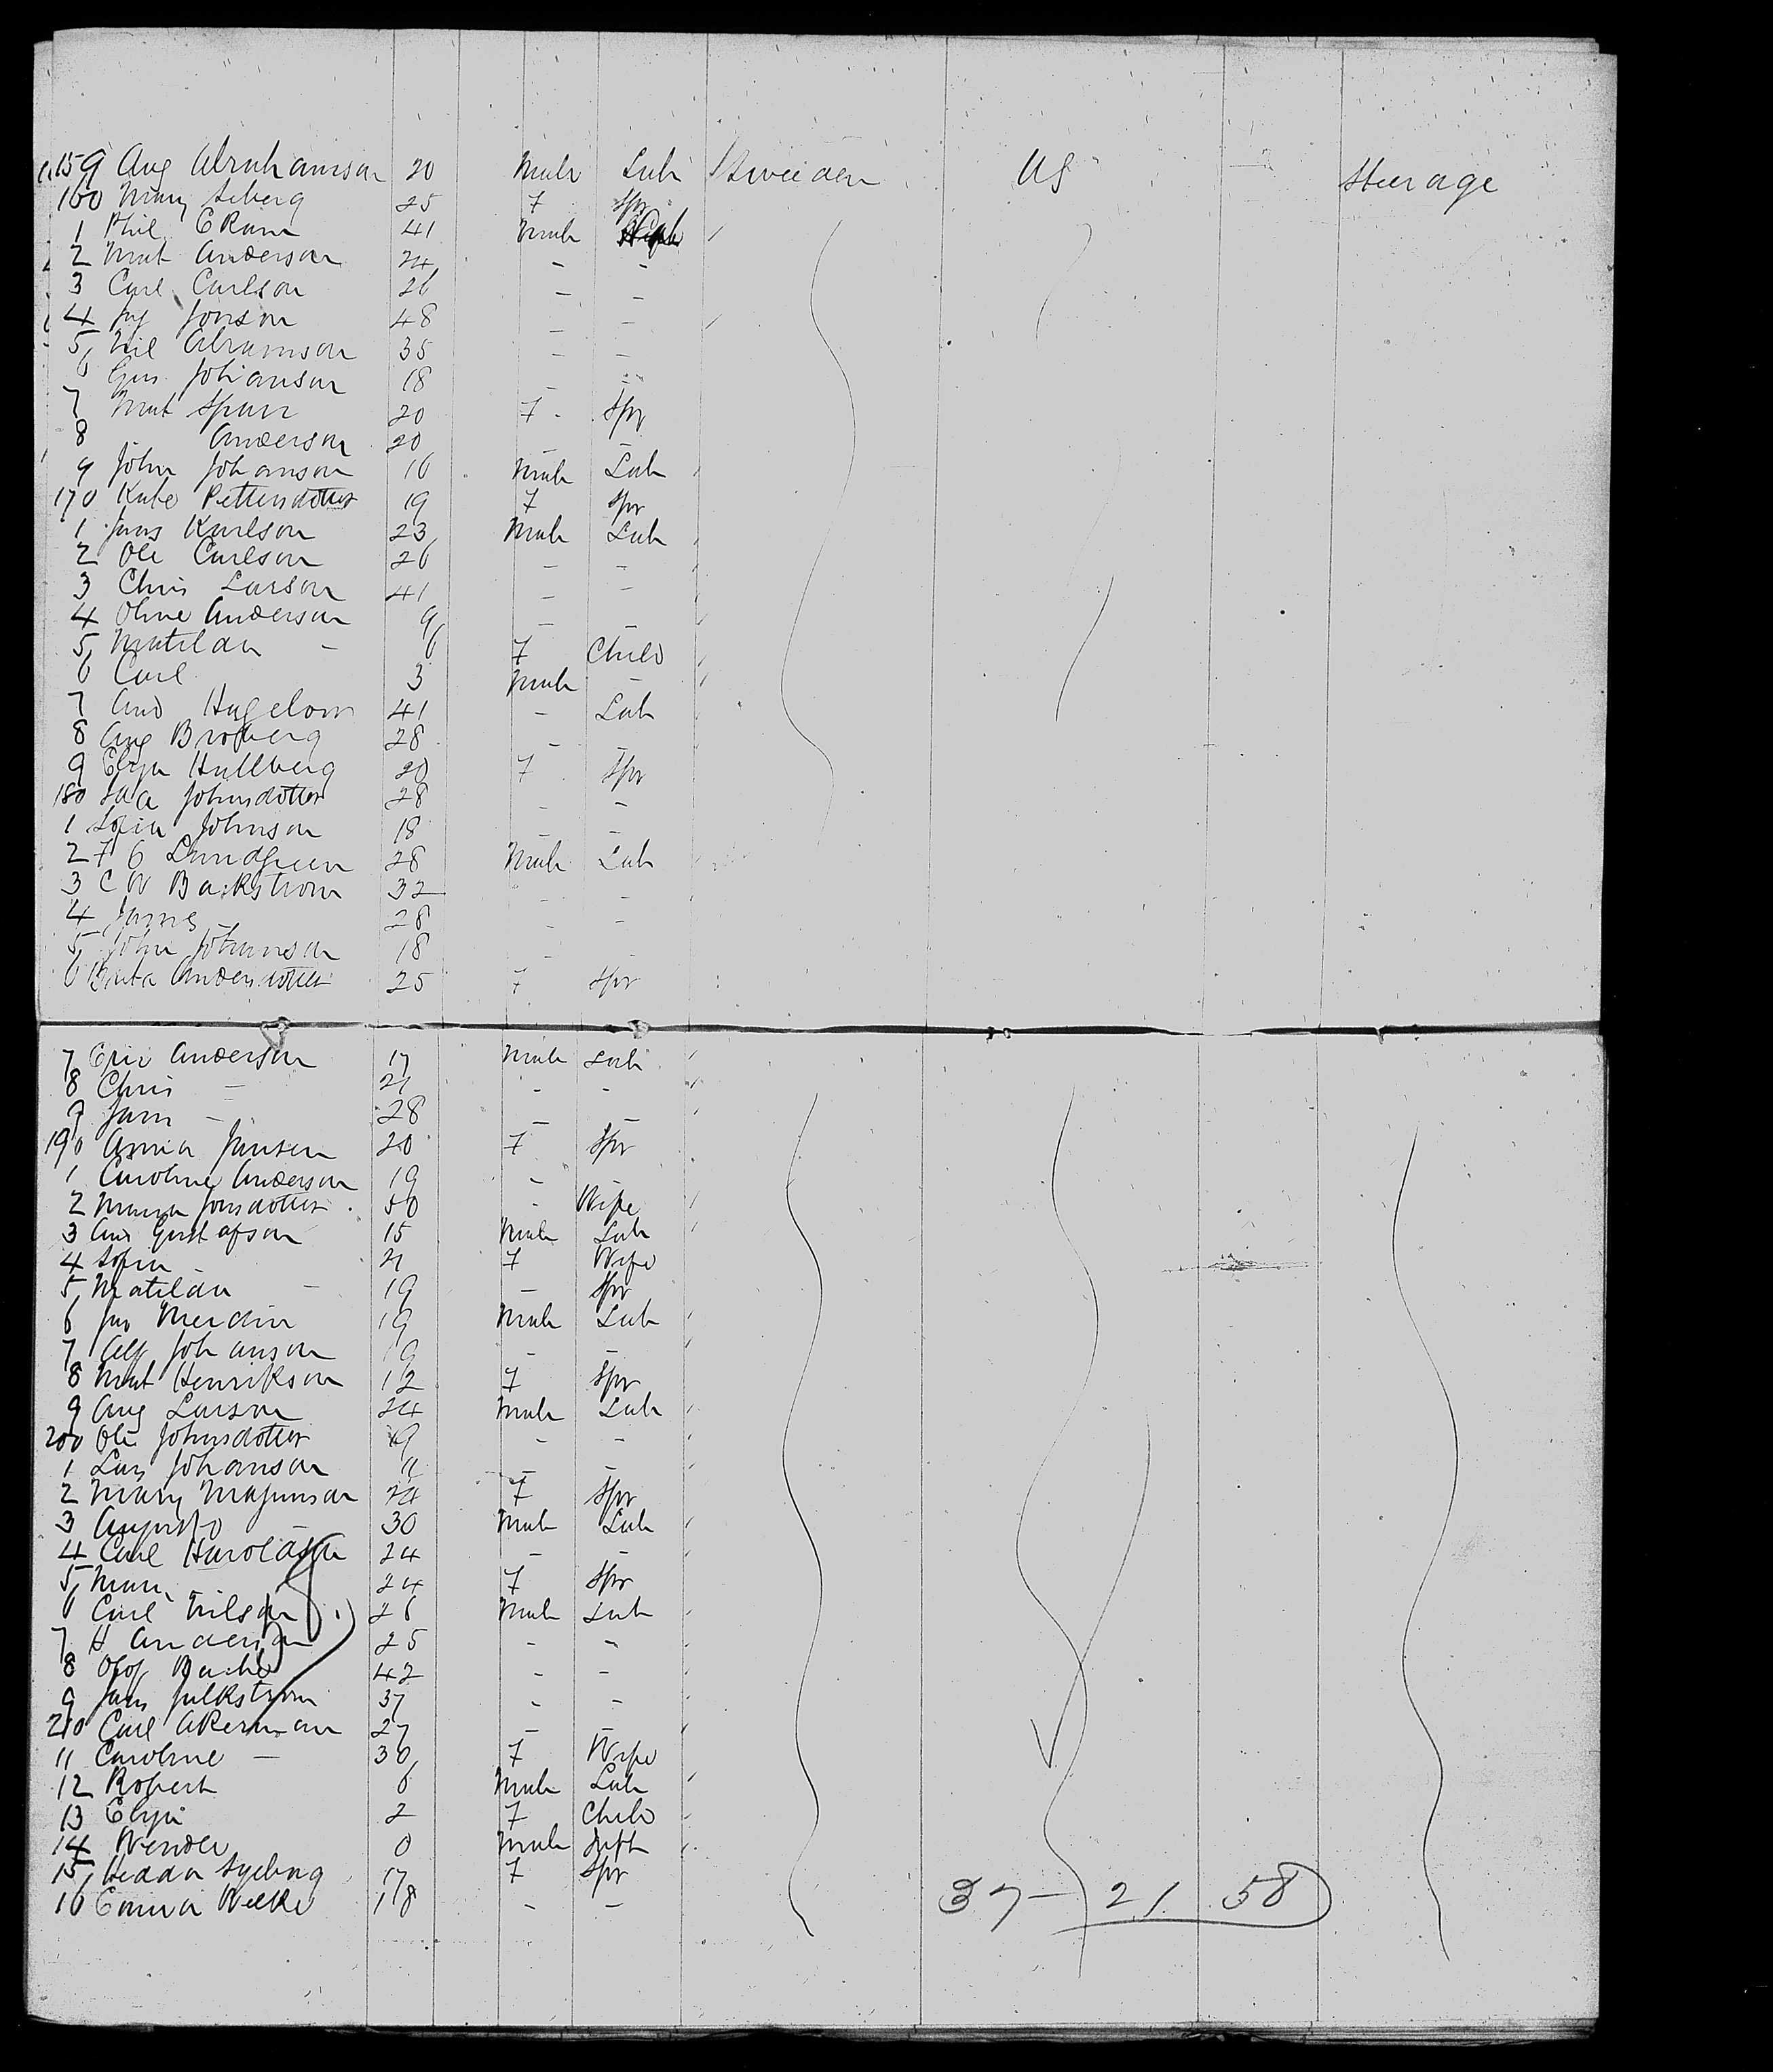 159 Aug Abrahamson 20 Male Lab Sweeden US Steerage
160 Mary Seberg 25 F Spr
1 Phil Ekam 41 Male
2 Mat Anderson 24 - -
3 Carl Carlson 26 - -
4 Jonson 48 - -
5 Nil Abramson 35 - -
6 Gus Johanson 18 - -
7 Mat Sparr 20 F Spr
8 Anderson 20 - -
9 John Johanson 16 Male Lab
170 Kate Pettersdotter 19 F Spr
1 Jans Karlson 23 Male Lab
2 Ole Carlson 26 - -
3 Chris Larson 41 - -
4 Oline Anderson 9 - -
5 Matilda - 6 F Child
6 Carl 3 Male -
7 And Hagelom 41 - Lab
8 Aug Broberg 28 - -
9 Eliza Hallberg 20 F Spr
180 Ida Johnsdotter 28 - -
1 Sofia Johnson 18 - -
2 F G Lundgreen 28 Male Lab
3 C W Backstrom 32 - -
4 James - 28 - -
5 John Johanson 18 - -
6 Brita Andersdotter 25 F Spr
7 Eric Anderson 17 Male Lab
8 Chris - 21 - -
9 Jam - 28 - -
190 Anna Jansen 20 F Spr
1 Caroline Anderson 19 - -
2 Maria Jonsdotter 50 - Wife
3 And Gustafson 15 Male Lab
4 Sofia - 21 F Wife
5 Matilda - 19 - Spr
6 Merdin 19 Male Lab
7 Alf Johanson 19 - -
8 Mat Henrikson 12 F Spr
9 Aug Larson 24 Male Lab
200 Ole Johnsdotter 19 - -
1 Lars Johanson 11 - -
2 Mary Magnuson 24 F Spr
3 August 30 Male Lab
4 Carl Haroldson 24 - -
5 Mary - 24 F Spr
6 Carl Nilson 26 Male Lab
7 H Anderson 25 - -
8 Olof 42 - -
9 Jans Julkstrom 37 - -
210 Carl Akerman 27 - -
11 Caroline - 30 F Wife
12 Robert 6 Male Lab
13 Eliza 2 F Child
14 0 Male Inft
15 Hedda Syeberg 17 F Spr
16 Emma Welke 18 - -
37 - 21 58